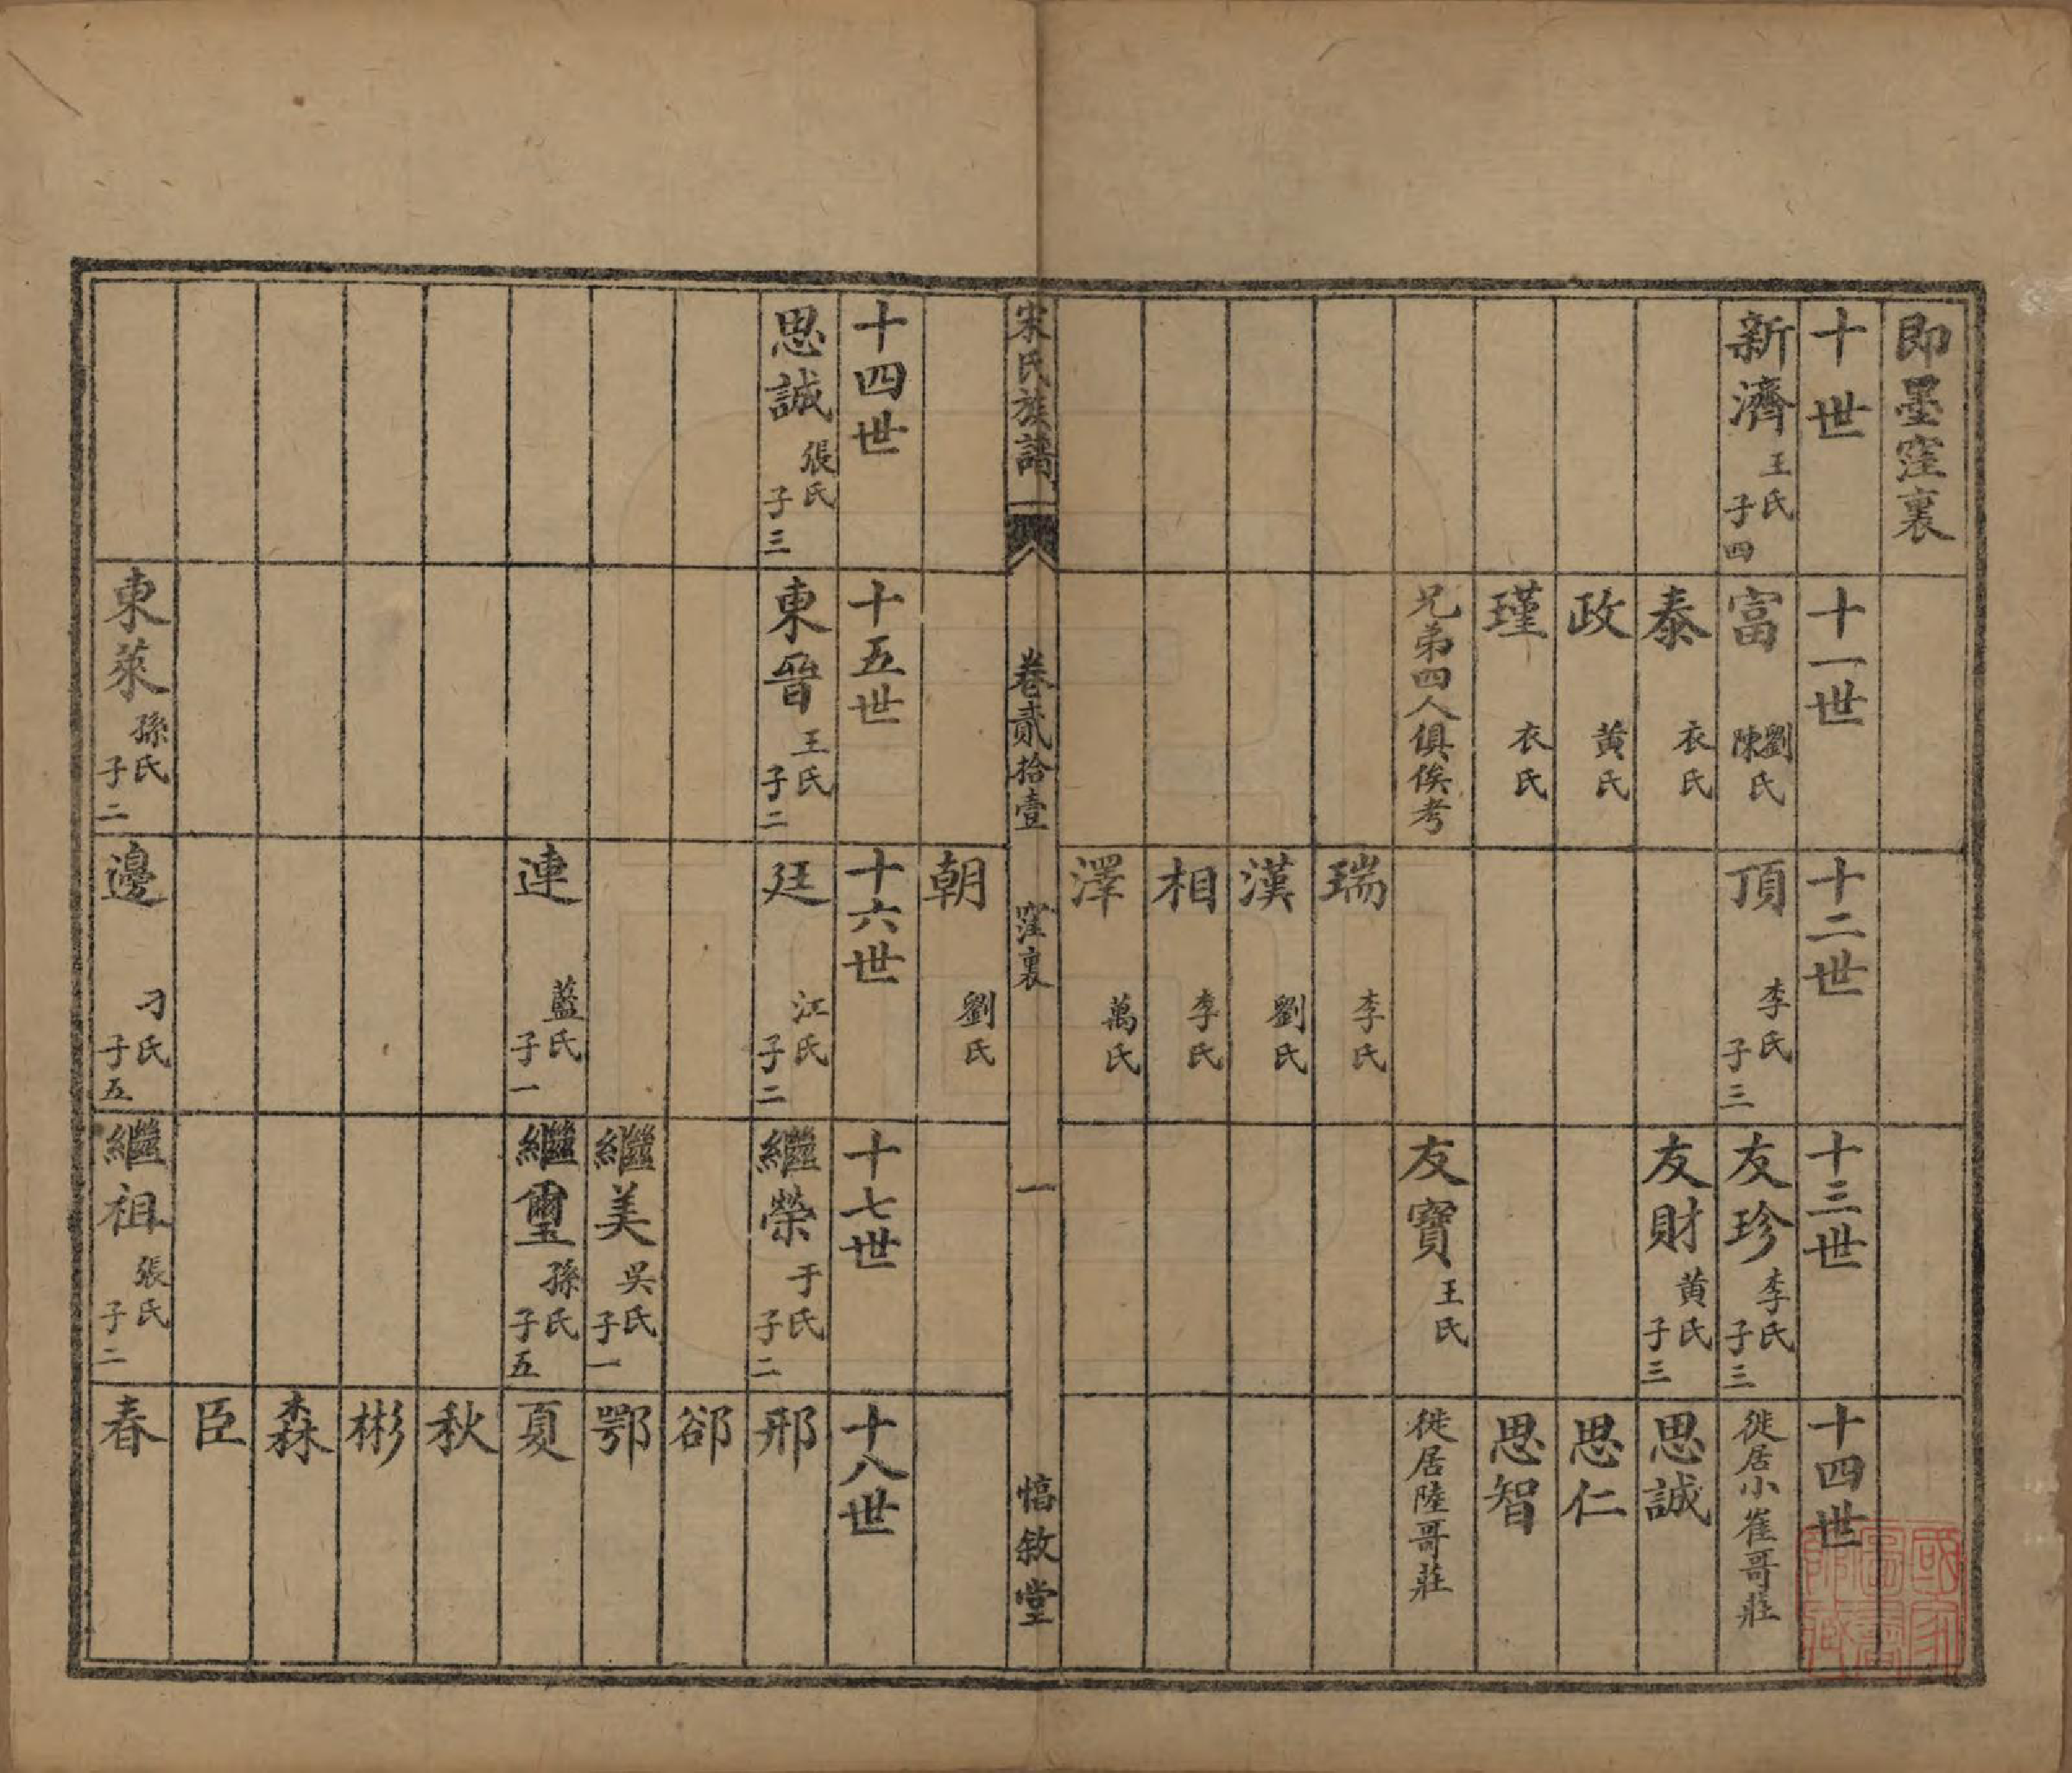 即墨窪裏
十世
十一世
十二世
十三世
十四世
新濟 王氏 子四
富 劉陳氏
頂 李氏 子三
友珍 李氏 子三
徙居小崔哥莊
泰 衣氏
友財 黄氏 子三
思誠
政 黄氏
思仁
瑾 衣氏
思智
兄弟四人俱俟考
友寶 王氏
徙居陸哥莊
瑞 李氏
漢 劉氏
相 李氏
澤 萬氏
宋氏族譜 卷貳拾壹 窪裏 一 惇敘堂
朝 劉氏
十四世
十五世
十六世
十七世
十八世
思誠 張氏 子三
東晉 王氏 子二
廷 江氏 子二
繼榮 于氏 子二
邢
郤
繼美 吳氏 子一
鄂
連 藍氏 子一
繼璽 孫氏 子五
夏
秋
彬
森
臣
東萊 孫氏 子二
邊 刁氏 子五
繼祖 張氏 子二
春
國家圖書館藏